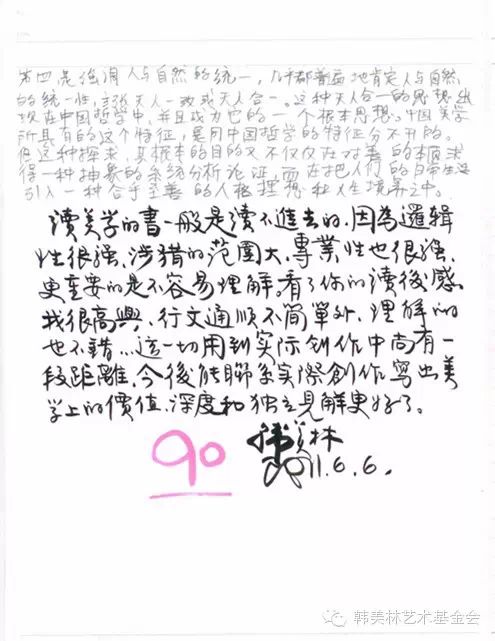 第四是强调人与自然的统一，几乎都普遍地肯定人与自然
的统一性，主张天人一致或天人合一。这种天人合一的思想出
现在中国哲学中，并且成为它的一个根本思想。中国美学
所具有的这个特征，是同中国哲学的特征分不开的。
但这种探求，其根本的目的又不仅仅在对善的本质求
得一种抽象的系统分析论证，而在把人们的日常生活
引入一种合乎至善的人格理想和人生境界之中。
读美学的書一般是读不進去的，因為邏辑
性很强、涉猎的范圍大、專業性也很强、
更重要的是不容易理解。看了你的读後感。
我很高興、行文通顺不简單外、理解的
也不错…这一切用到实际创作中尚有一
段距離、今後能聯系实際創作寫出美
学上的價值、深度和独立見解更好了。
韩美林
90
2011.6.6.
韩美林艺术基金会